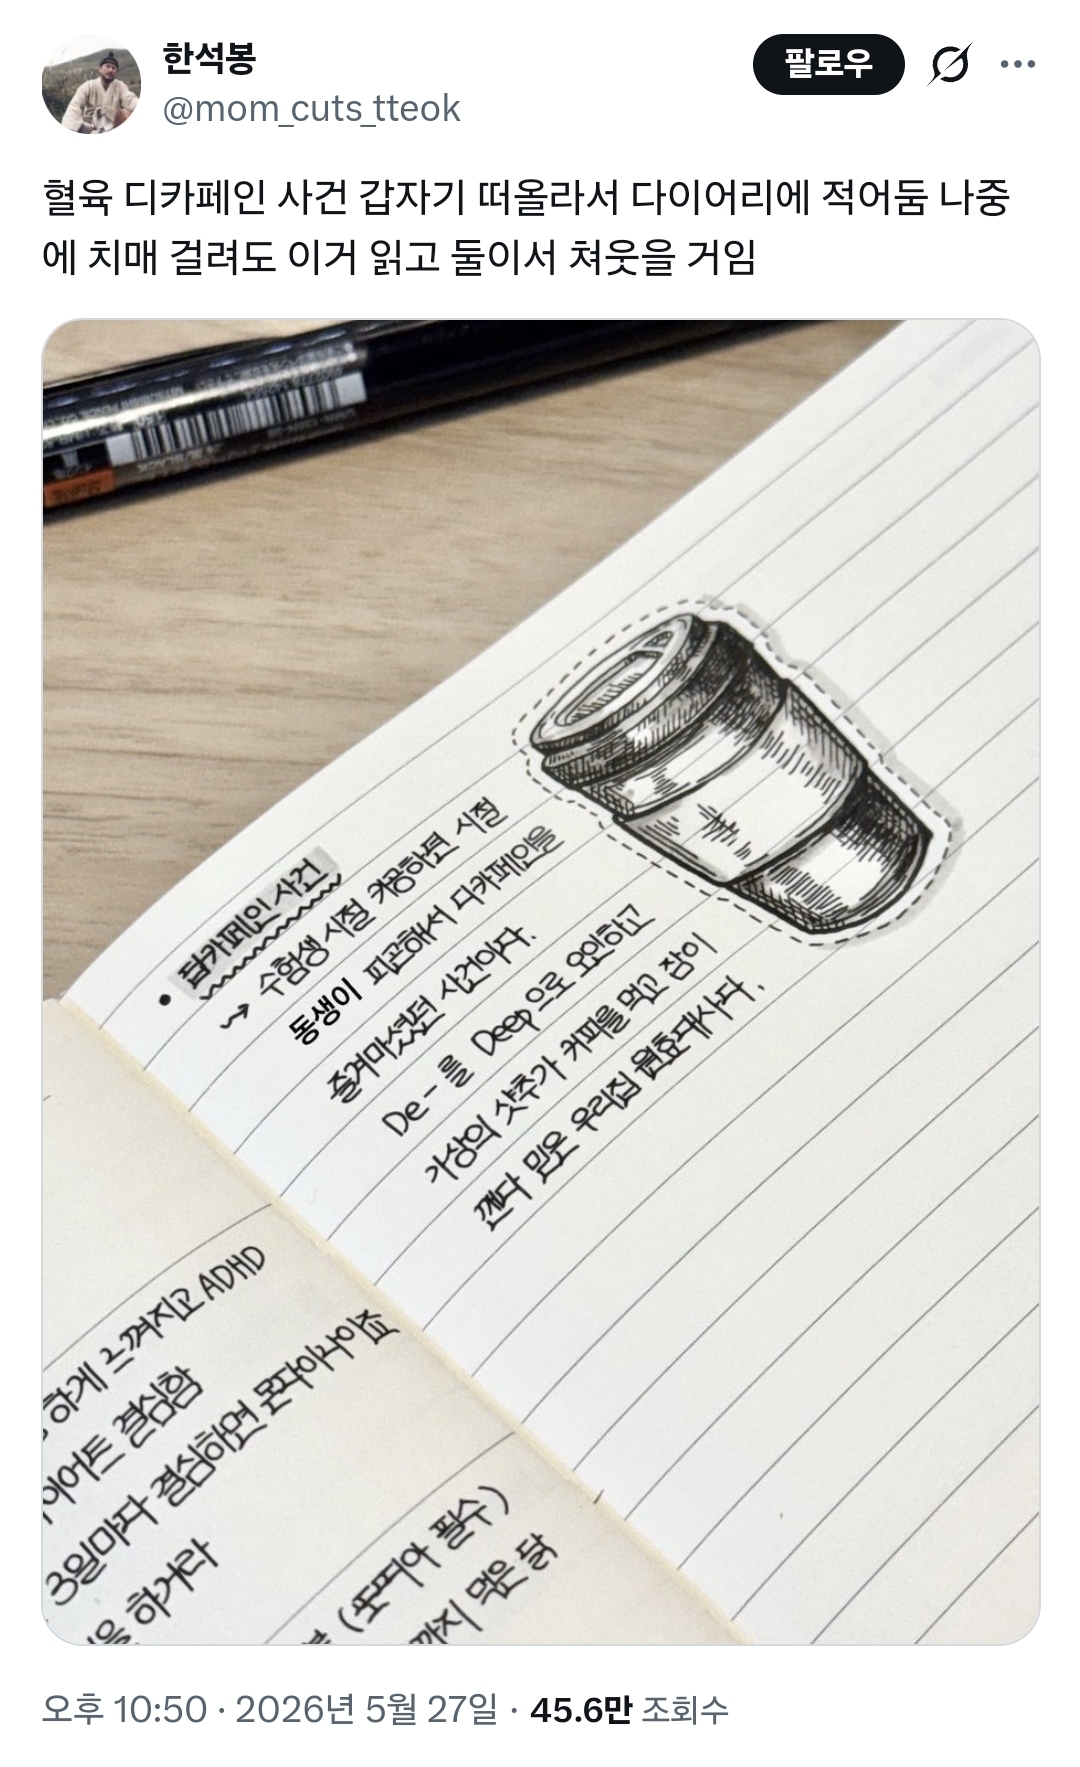 한석봉
팔로우
@mom_cuts_tteok
혈육 디카페인 사건 갑자기 떠올라서 다이어리에 적어둠 나중
에 치매 걸려도 이거 읽고 둘이서 쳐웃을 거임
• 딥카페인 사건
→ 수험생 시절 카공하던 시절
동생이 피곤해서 디카페인을
즐겨마셨던 사건이다.
De-를 Deep으로 오인하고
가상의 샷추가 커피를 먹고 잠이
깬다 믿은 우리집 원효대사다.
하게 느껴지고 ADHD
이어트 결심함
3일마다 결심하면 문자이라이죠
을 하거라
(또띠아 필수)
까지 먹은 닭
오후 10:50 · 2026년 5월 27일 · 45.6만 조회수